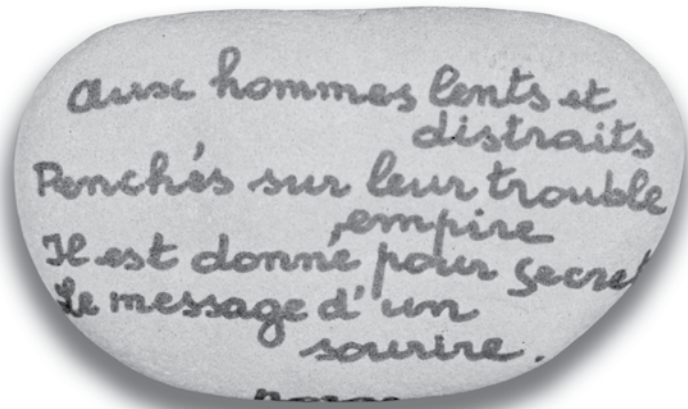 aux hommes lents et
distraits
Penchés sur leur trouble
empire
Il est donné pour secret
Le message d'un
sourire.